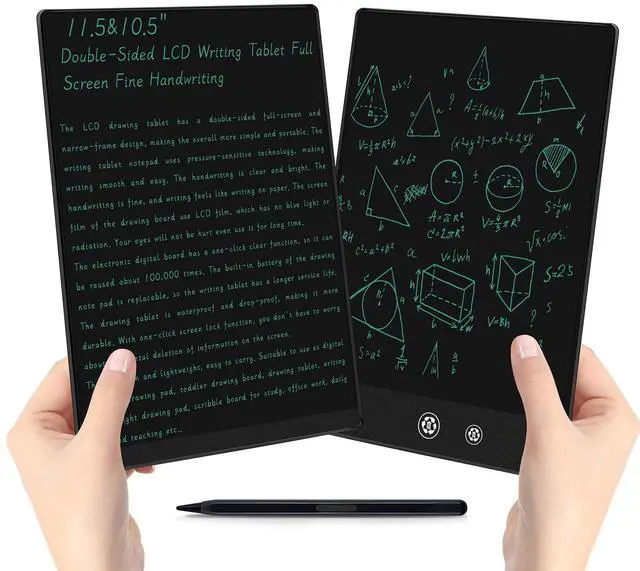 11.5&10.5"
Double-Sided LCD Writing Tablet Full
Screen Fine Handwriting
The LCD drawing tablet has a double-sided full-screen and
narrow-frame design, making the overall more simple and portable. The
writing tablet notepad uses pressure-sensitive technology, making
writing smooth and easy. The handwriting is clear and bright. The
handwriting is fine, and writing feels like writing on paper. The screen
film of the drawing board use LCD film, which has no blue light or
radiation. Your eyes will not be hurt even use it for long time.
The electronic digital board has a one-click clear function, so it can
be reused about 100.000 times. The built-in battery of the drawing
note pad is replacable, so the writing tablet has a longer service life,
The drawing tablet is waterproof and drop-proof, making it more
durable. With one-click screen lock function, you don't have to worry
about tal deletion of information on the screen.
and lightweight, easy to carry. Suitable to use as digital
drawing pad, toddler drawing board, drawing tablet, writing
drawing pad, scribble board for study, office work, daily
teaching etc..
a·b=?
V=⅓πR²h
a²+b²
c²=a²+b²
S=a²
a
?
A=½(a+b)h
(x²+y²)-2x²+2xy
A=πR²
C=2πR
±
V=4/3πR³
V=LWh
V=Bh
?
√x·cos·
S=25
S